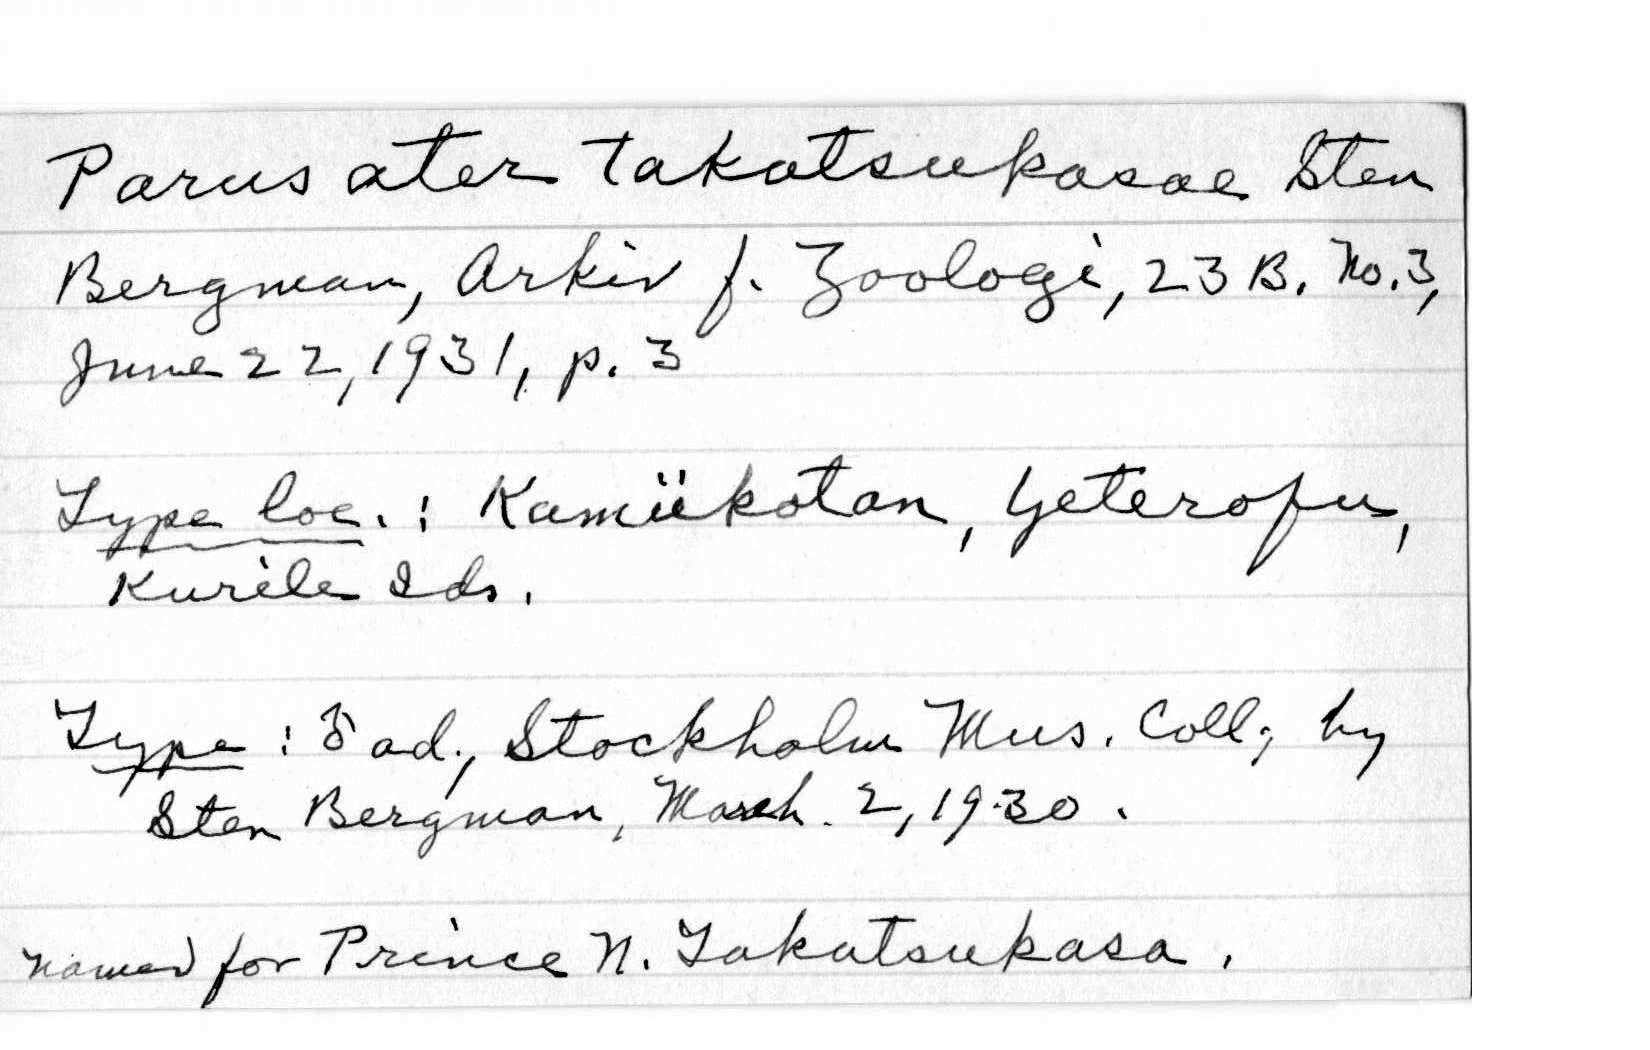 Parus ater takatsukasae Sten
Bergman, Arkiv f. Zoologi, 23 B. No. 3,
June 22, 1931, p. 3
Type loc. : Kamiikotan, Yeterofu,
Kurile Ids.
Type : ♂ ad., Stockholm Mus. Coll; by
Sten Bergman, March. 2, 1930.
named for Prince N. Takatsukasa.